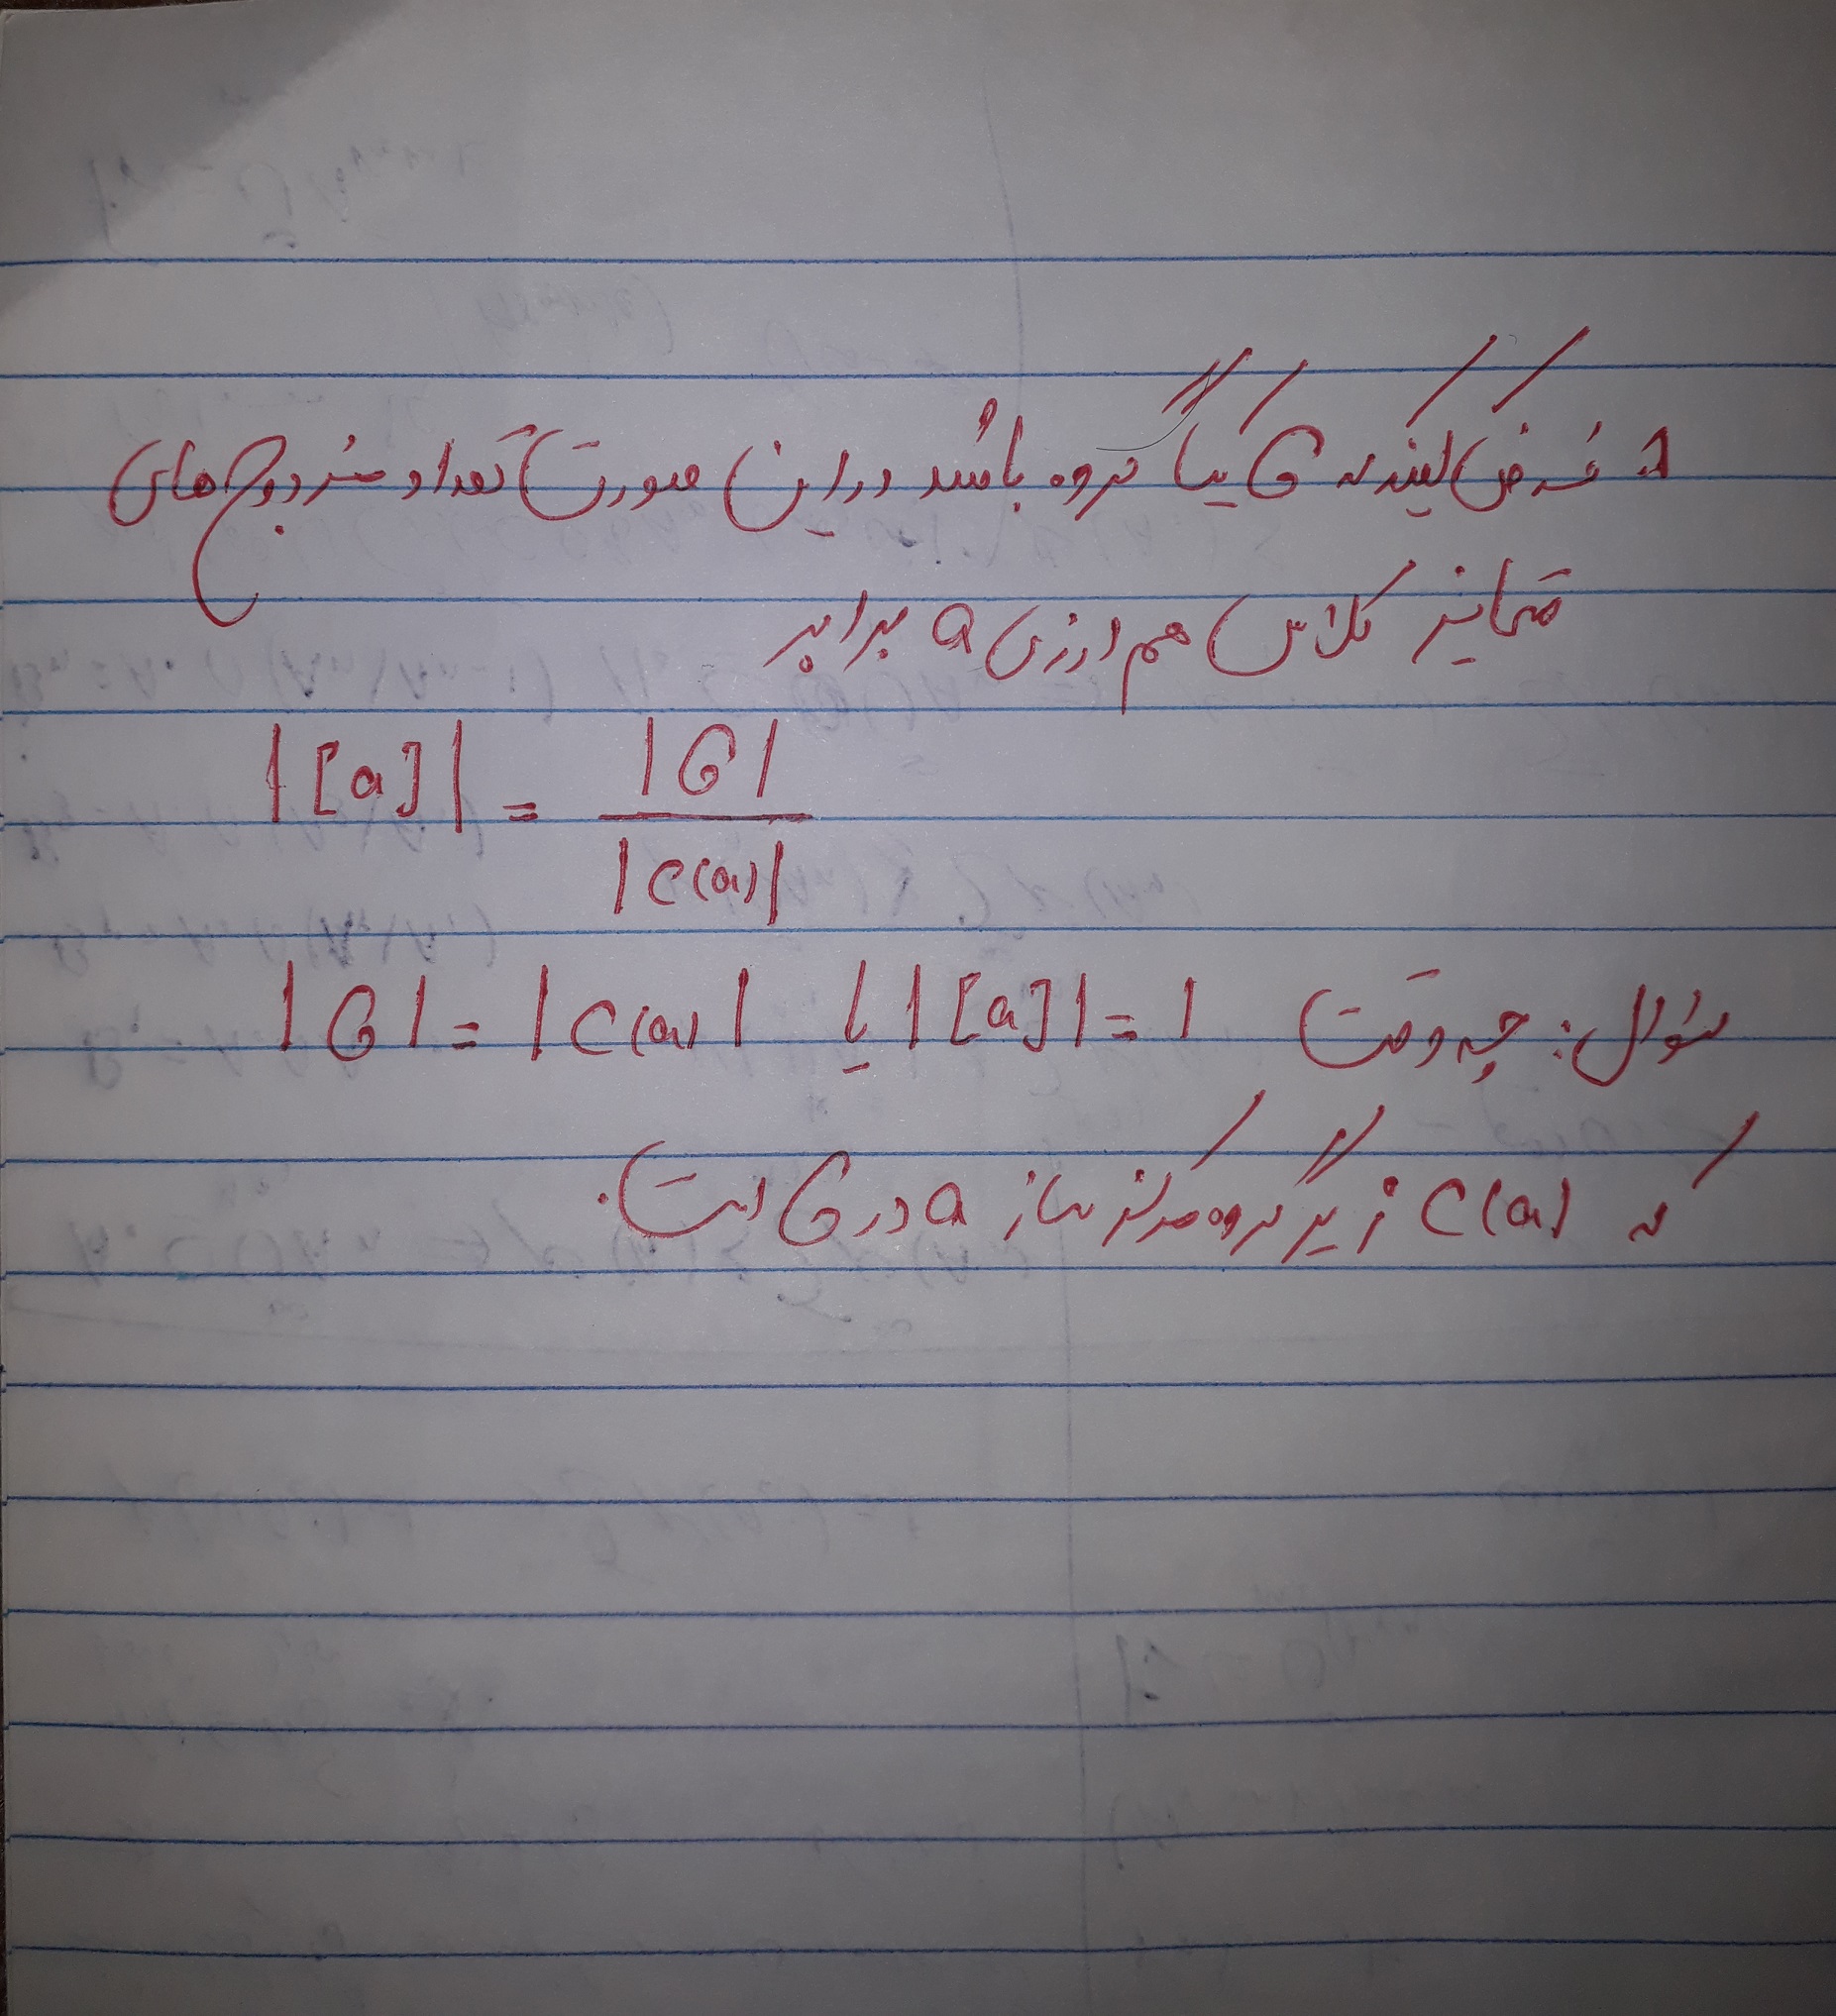 1. فرض کنید که G یک گروه باشد در این صورت تعداد مزدوج های
متمایز کلاس هم ارزی a برابر
|[a]| = |G| / |C(a)|
سؤال: چه وقت |[a]| = 1 یا |G| = |C(a)|
که C(a) زیر گروه مرکز ساز a در G است.